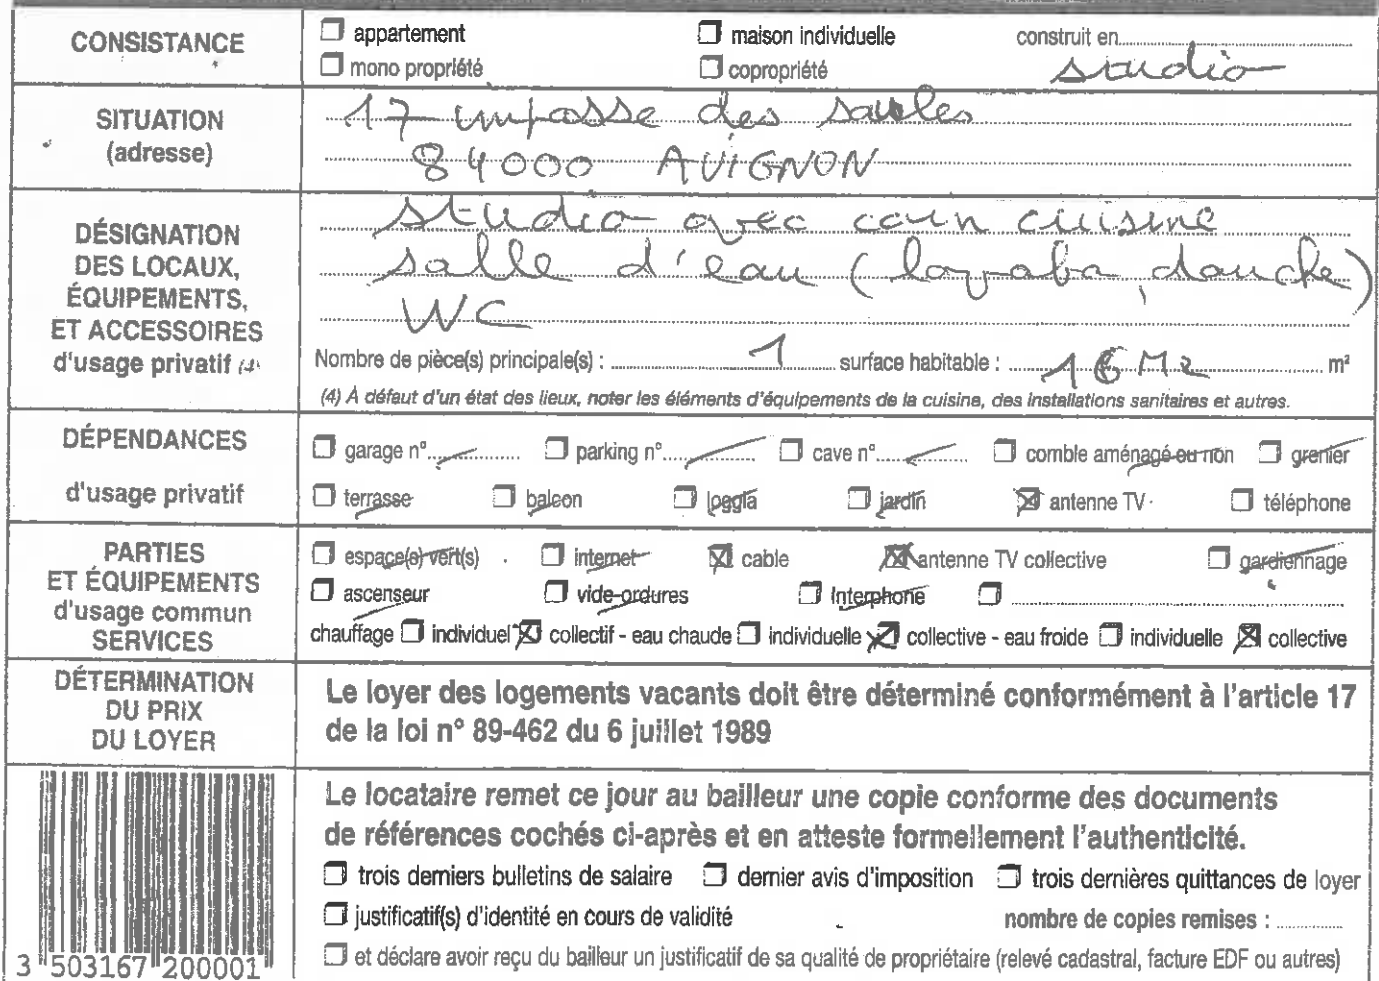 CONSISTANCE
appartement maison individuelle construit en
mono propriété copropriété studio
SITUATION
(adresse)
17 impasse des saules
84000 AVIGNON
DÉSIGNATION
DES LOCAUX,
ÉQUIPEMENTS,
ET ACCESSOIRES
d'usage privatif (4)
studio avec coin cuisine
salle d'eau (lavabo, douche)
WC
Nombre de pièce(s) principale(s) : 1 surface habitable : 16 M2 m²
(4) À défaut d'un état des lieux, noter les éléments d'équipements de la cuisine, des installations sanitaires et autres.
DÉPENDANCES
d'usage privatif
garage n° parking n° cave n° comble aménagé ou non grenier
terrasse balcon loggia jardin antenne TV téléphone
PARTIES
ET ÉQUIPEMENTS
d'usage commun
SERVICES
espace(s) vert(s) internet cable antenne TV collective gardiennage
ascenseur vide-ordures Interphone
chauffage individuel collectif - eau chaude individuelle collective - eau froide individuelle collective
DÉTERMINATION
DU PRIX
DU LOYER
Le loyer des logements vacants doit être déterminé conformément à l'article 17
de la loi n° 89-462 du 6 juillet 1989
Le locataire remet ce jour au bailleur une copie conforme des documents
de références cochés ci-après et en atteste formellement l'authenticité.
trois derniers bulletins de salaire dernier avis d'imposition trois dernières quittances de loyer
justificatif(s) d'identité en cours de validité nombre de copies remises :
et déclare avoir reçu du bailleur un justificatif de sa qualité de propriétaire (relevé cadastral, facture EDF ou autres)
3 503167 200001